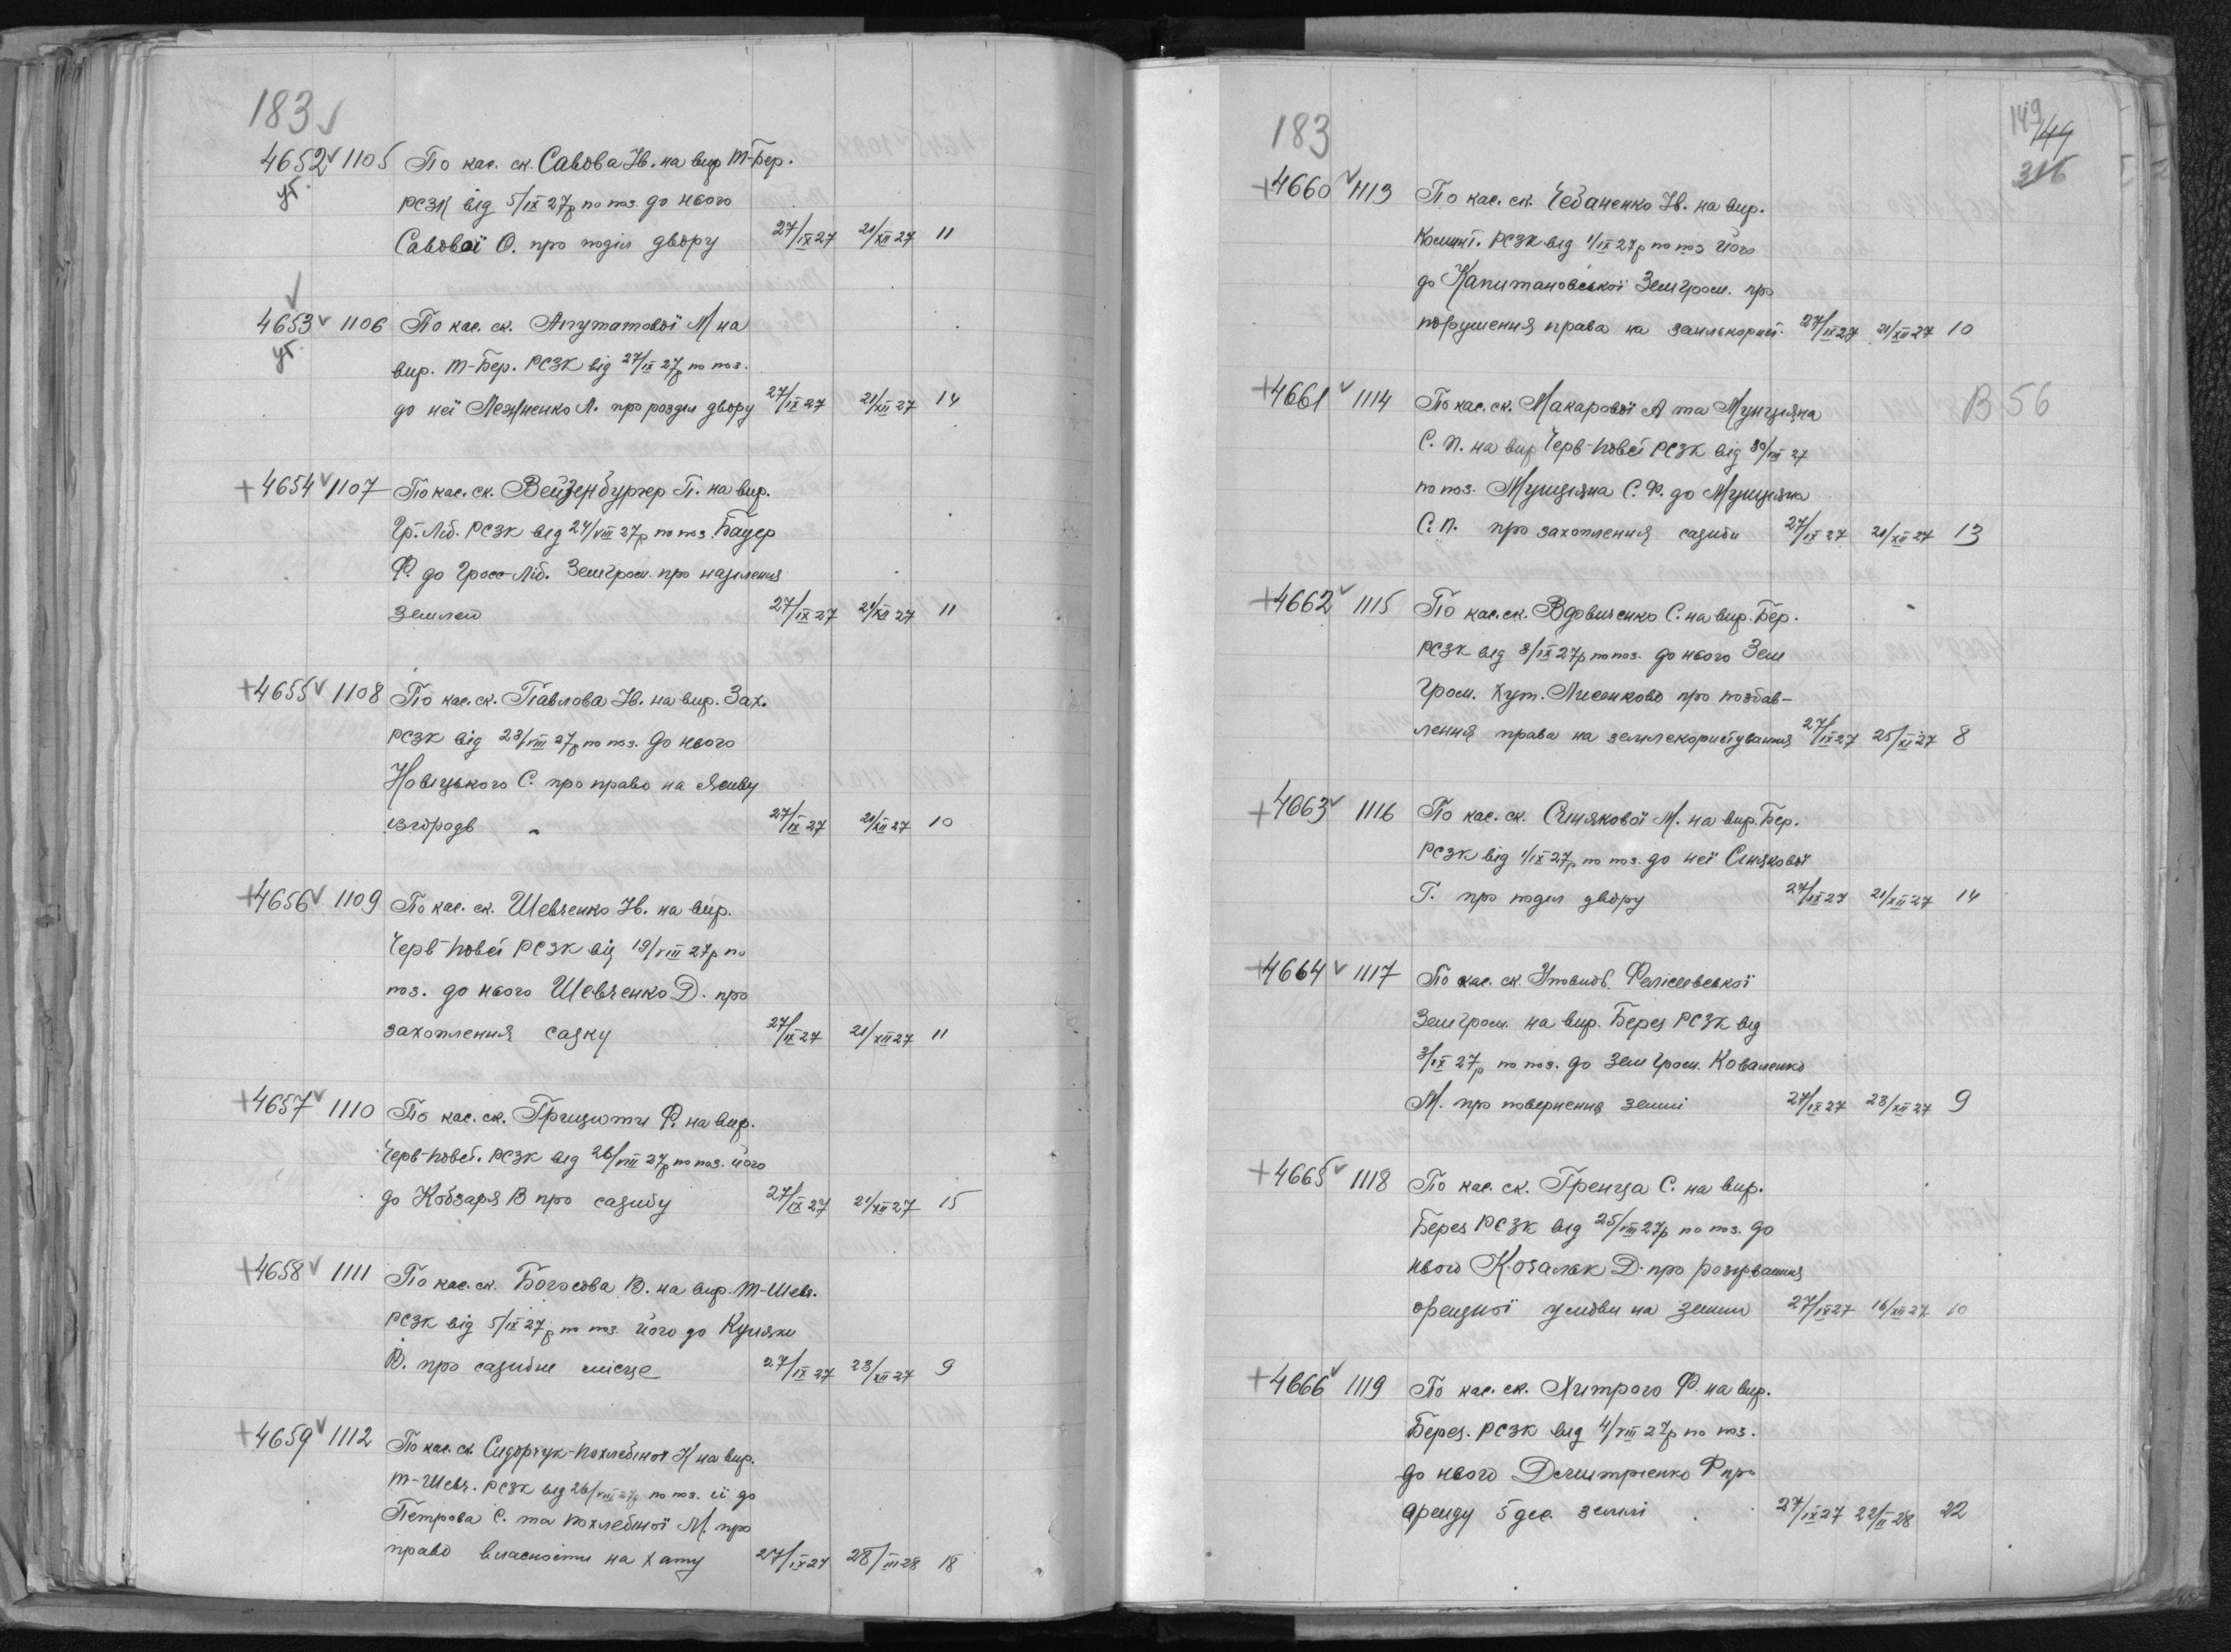 183
4652 1105 По кас. ск. Савова Ів. на вир Т-Бер.
ут.
РСЗК від 5/IX 27р по поз. до нього
Савової О. про поділ двору 27/IX 27 21/XII 27 11
4653 1106 По кас. ск. М на
ут.
вир. Т-Бер. РСЗК від 27/IX 27р по поз.
до неї Лежненко Л. про розділ двору 27/IX 27 21/XII 27 14
+4654 1107 По кас. ск. Вейзенбургер П. на вир.
Гр.Ліб. РСЗК від 24/VIII 27р по поз. Бауер
Ф. до Гросс-Ліб.Земгром. про наділення
землею 27/IX 27 21/XII 27 11
+4655 1108 По кас. ск. Павлова Ів. на вир. Зах.
РСЗК від 23/VIII 27р по поз. до нього
Новіцького С. про право на
27/IX 27 21/XII 27 10
+4656 1109 По кас. ск. Шевченко Ів. на вир.
Черв-Пов РСЗК від 19/VIII 27р по
поз. до нього Шевченко Д. про
захоплення садку 27/IX 27 21/XII 27 11
+4657 1110 По кас. ск. Грицюти Ф. на вир.
Черв-Пов. РСЗК від 26/VIII 27р по поз. його
до Кобзаря В про садибу 27/IX 27 21/XII 27 15
+4658 1111 По кас. ск. В. на вир. Т-Шевч.
РСЗК від 5/IX 27р по поз. його до
В. про садибне місце 27/IX 27 23/XII 27 9
+4659 1112 По кас. ск. Сидорчук-Похлебіної К на вир.
Т-Шевч. РСЗК від 26/VIII 27р по поз. її до
Петрова С. та Похлебіної М. про
право власности на хату 27/IX 27 28/III 28 18
183
149
44
316
+4660 1113 По кас. ск. Чебаненко Ів. на вир.
Комінт. РСЗК від 1/IX 27р по поз його
до Капитановської Земгром. про
порушення права на землекорист. 27/IX 27 21/XII 27 10
+4661 1114 По кас. ск. Макарової А та Мунтяна В 56
С. П. на вир Черв-Пов РСЗК від 30/VIII 27
по поз. С. Ф. до
С. П. про захоплення садиби 27/IX 27 21/XII 27 13
+4662 1115 По кас. ск. Вдовиченко С. на вир. Бер.
РСЗК від 3/IX 27р по поз. до нього Зем
Гром. хут. Лисенково про позбав-
лення права на землекористування 27/IX 27 25/XI 27 8
+4663 1116 По кас. ск. Синякової М. на вир. Бер.
РСЗК від 1/IX 27р по поз. до неї Синякової
Г. про поділ двору 27/IX 27 21/XII 27 14
+4664 1117 По кас. ск.
Земгром. на вир. Берез РСЗК від
3/IX 27р по поз. до Зем Гром. Коваленко
М. про повернення землі 27/IX 27 23/XII 27 9
+4665 1118 По кас. ск. С. на вир.
Берез РСЗК від 25/VIII 27р по поз. до
нього Козалак Д. про розірвання
орендної умови на землю 27/IX 27 16/XII 27 10
+4666 1119 По кас. ск. Хитрого Ф. на вир.
Берез. РСЗК від 4/VIII 27р по поз.
до нього Демитрієнко Ф про
аренду 5 дес. землі 27/IX 27 22/II 28 22